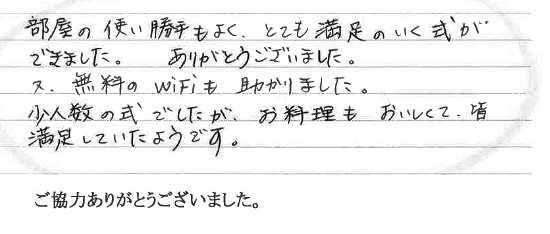 部屋の使い勝手もよく、とても満足のいく式が
できました。 ありがとうございました。
又、無料のWiFiも助かりました。
少人数の式でしたが、お料理もおいしくて、皆
満足していたようです。
ご協力ありがとうございました。